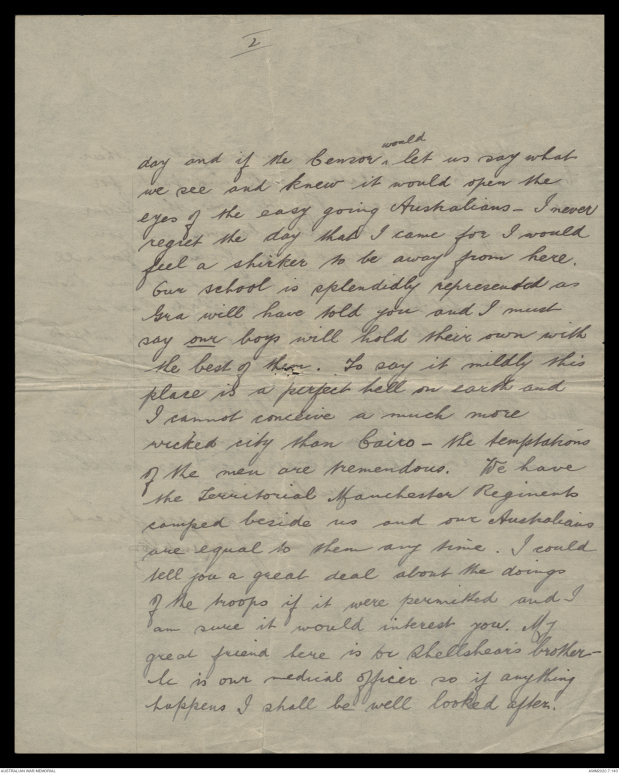 2
day and if the Censor would let us say what
we see and knew it would open the
eyes of the easy going Australians - I never
regret the day that I came for I would
feel a shirker to be away from here.
Our school is splendidly represented as
Gra will have told you and I must
say our boys will hold their own with
the best of them. To say it mildly this
place is a perfect hell on earth and
I cannot conceive a much more
wicked city than Cairo - the temptations
of the men are tremendous. We have
the Territorial Manchester Regiments
camped beside us and our Australians
are equal to them any time. I could
tell you a great deal about the doings
of the troops if it were permitted and I
am sure it would interest you. My
great friend here is Dr Shellshear's brother -
he is our medical officer so if anything
happens I shall be well looked after.
AUSTRALIAN WAR MEMORIAL